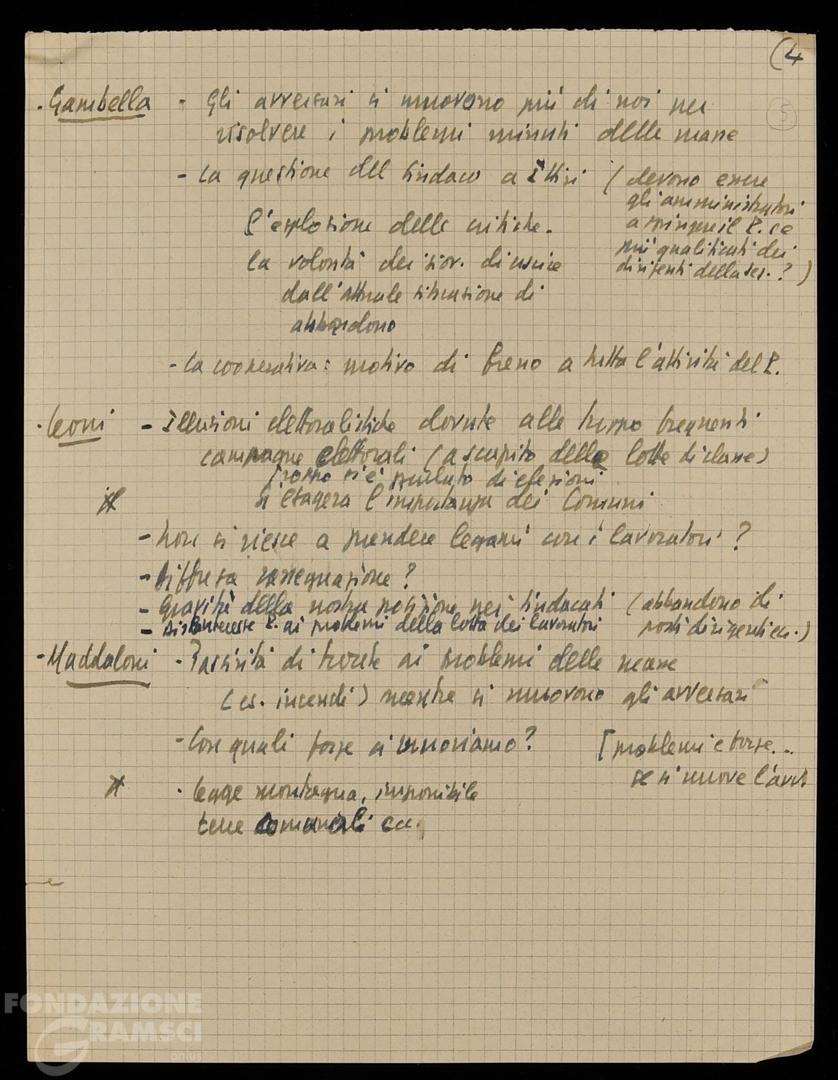 (4
5
· Gambella - Gli avversari si muovono più di noi nel
risolvere i problemi minuti delle masse
- La questione del sindaco a Ittiri (devono essere
gli amministratori
a spingere il P. o
più qualificati dei
dirigenti della sez. ?)
l'esplosione delle critiche.
la volontà dei giov. di uscire
dall'attuale situazione di
abbandono
- La cooperativa: motivo di freno a tutta l'attività del P.
· Leoni - Illusioni elettoralistiche dovute alle troppo frequenti
campagne elettorali (a scapito delle lotte di classe)
troppo si è parlato di elezioni
si esagera l'importanza dei Comuni
- Non si riesce a prendere legami con i lavoratori ?
- Diffusa rassegnazione ?
- Gravità della nostra posizione nei sindacati (abbandono di
posti dirigenti ecc.)
- Disinteresse P. ai problemi della lotta dei lavoratori
- Maddaloni - Passività di fronte ai problemi delle masse
(es. incendi) mentre si muovono gli avversari
- Con quali forze ci muoviamo ? [problemi e forze..
se si muove l'avv.
· legge montagna, imponibile
terre comunali ecc.
FONDAZIONE
GRAMSCI
onlus